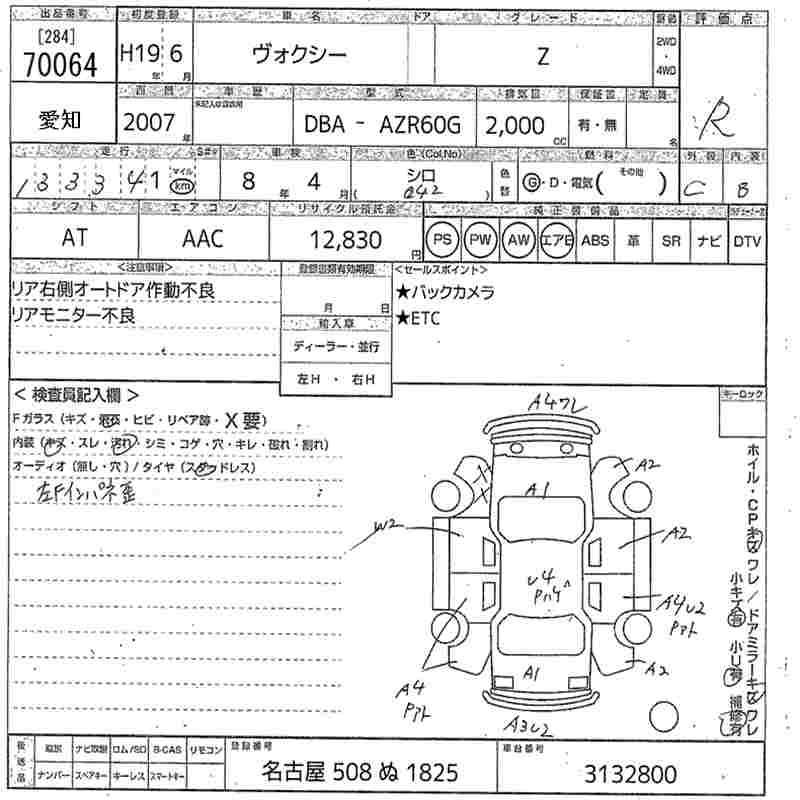 出品番号 初度登録 車名 ドア グレード 駆動 評価点
[284]
70064 H19 年 6 月 ヴォクシー Z 2WD・4WD R
愛知 西暦 車歴 型式 排気量 保証書 定員
2007年 DBA - AZR60G 2,000 CC 有・無 名
走行 S#* 車検 色(Col,No) 燃料 外装 内装
133341 マイル km 8年 4月 シロ ( 042 ) 色替 G・D・電気( その他 ) C B
シフト エアコン リサイクル預託金 純正装備品
AT AAC 12,830円 PS PW AW エアB ABS 革 SR ナビ DTV
<注意事項> 登録書類有効期限 <セールスポイント>
リア右側オートドア作動不良 ★バックカメラ
リアモニター不良 月 日 ★ETC
輸入車
ディーラー・並行
左H ・ 右H
< 検査員記入欄 > キーロック
Fガラス(キズ・飛石・ヒビ・リペア跡・X要)
内装(キズ・スレ・汚れ・シミ・コゲ・穴・キレ・破れ・割れ)
オーディオ(無し・穴)/タイヤ(スタッドレス)
左Fインパネ歪
A4ワレ
A2
A1
W2
A2
U4
A4U2
A4
A1
A2
A3U2
ホイル・CPキズワレ/ドアミラーキズワレ
小キズ有 小U有 補修有
後送品 取説 ナビ取説 ロム/SD B-CAS リモコン 登録番号 車台番号
ナンバー スペアキー キーレス スマートキー 名古屋 508 ぬ 1825 3132800